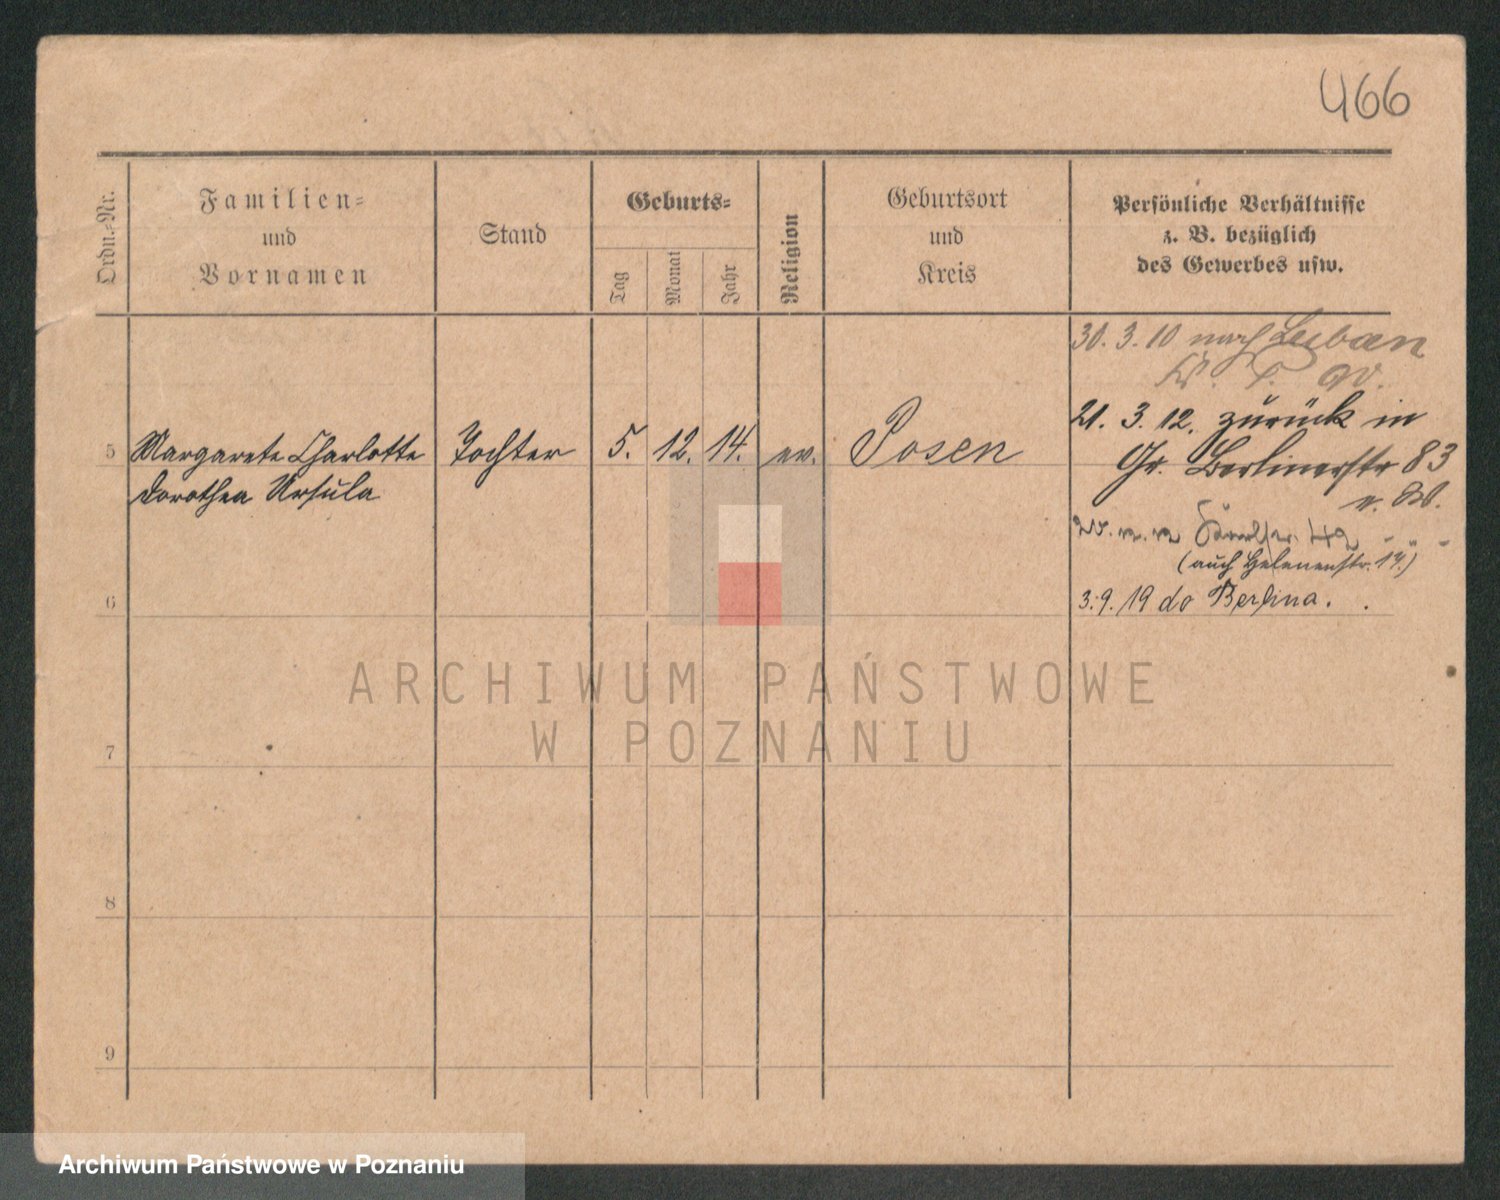 466
Ordn.-Nr.
Familien-
und
Vornamen
Stand
Geburts-
Tag
Monat
Jahr
Religion
Geburtsort
und
Kreis
Persönliche Verhältnisse
z. B. bezüglich
des Gewerbes usw.
30. 3. 10 nach Luban
Kr. P. W.
21. 3. 12. zurück in
Gr. Berlinerstr 83
5 Margarete Charlotte Tochter 5. 12. 14. ev. Posen
Dorothea Ursula
v. W.
42
(auch Helenenstr. 14.)
3.9.19 do Berlina.
6
7
8
9
ARCHIWUM PAŃSTWOWE
W POZNANIU
Archiwum Państwowe w Poznaniu